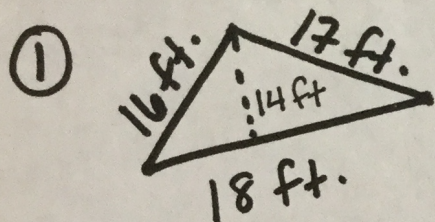 ①
16 ft.
17 ft.
14 ft
18 ft.